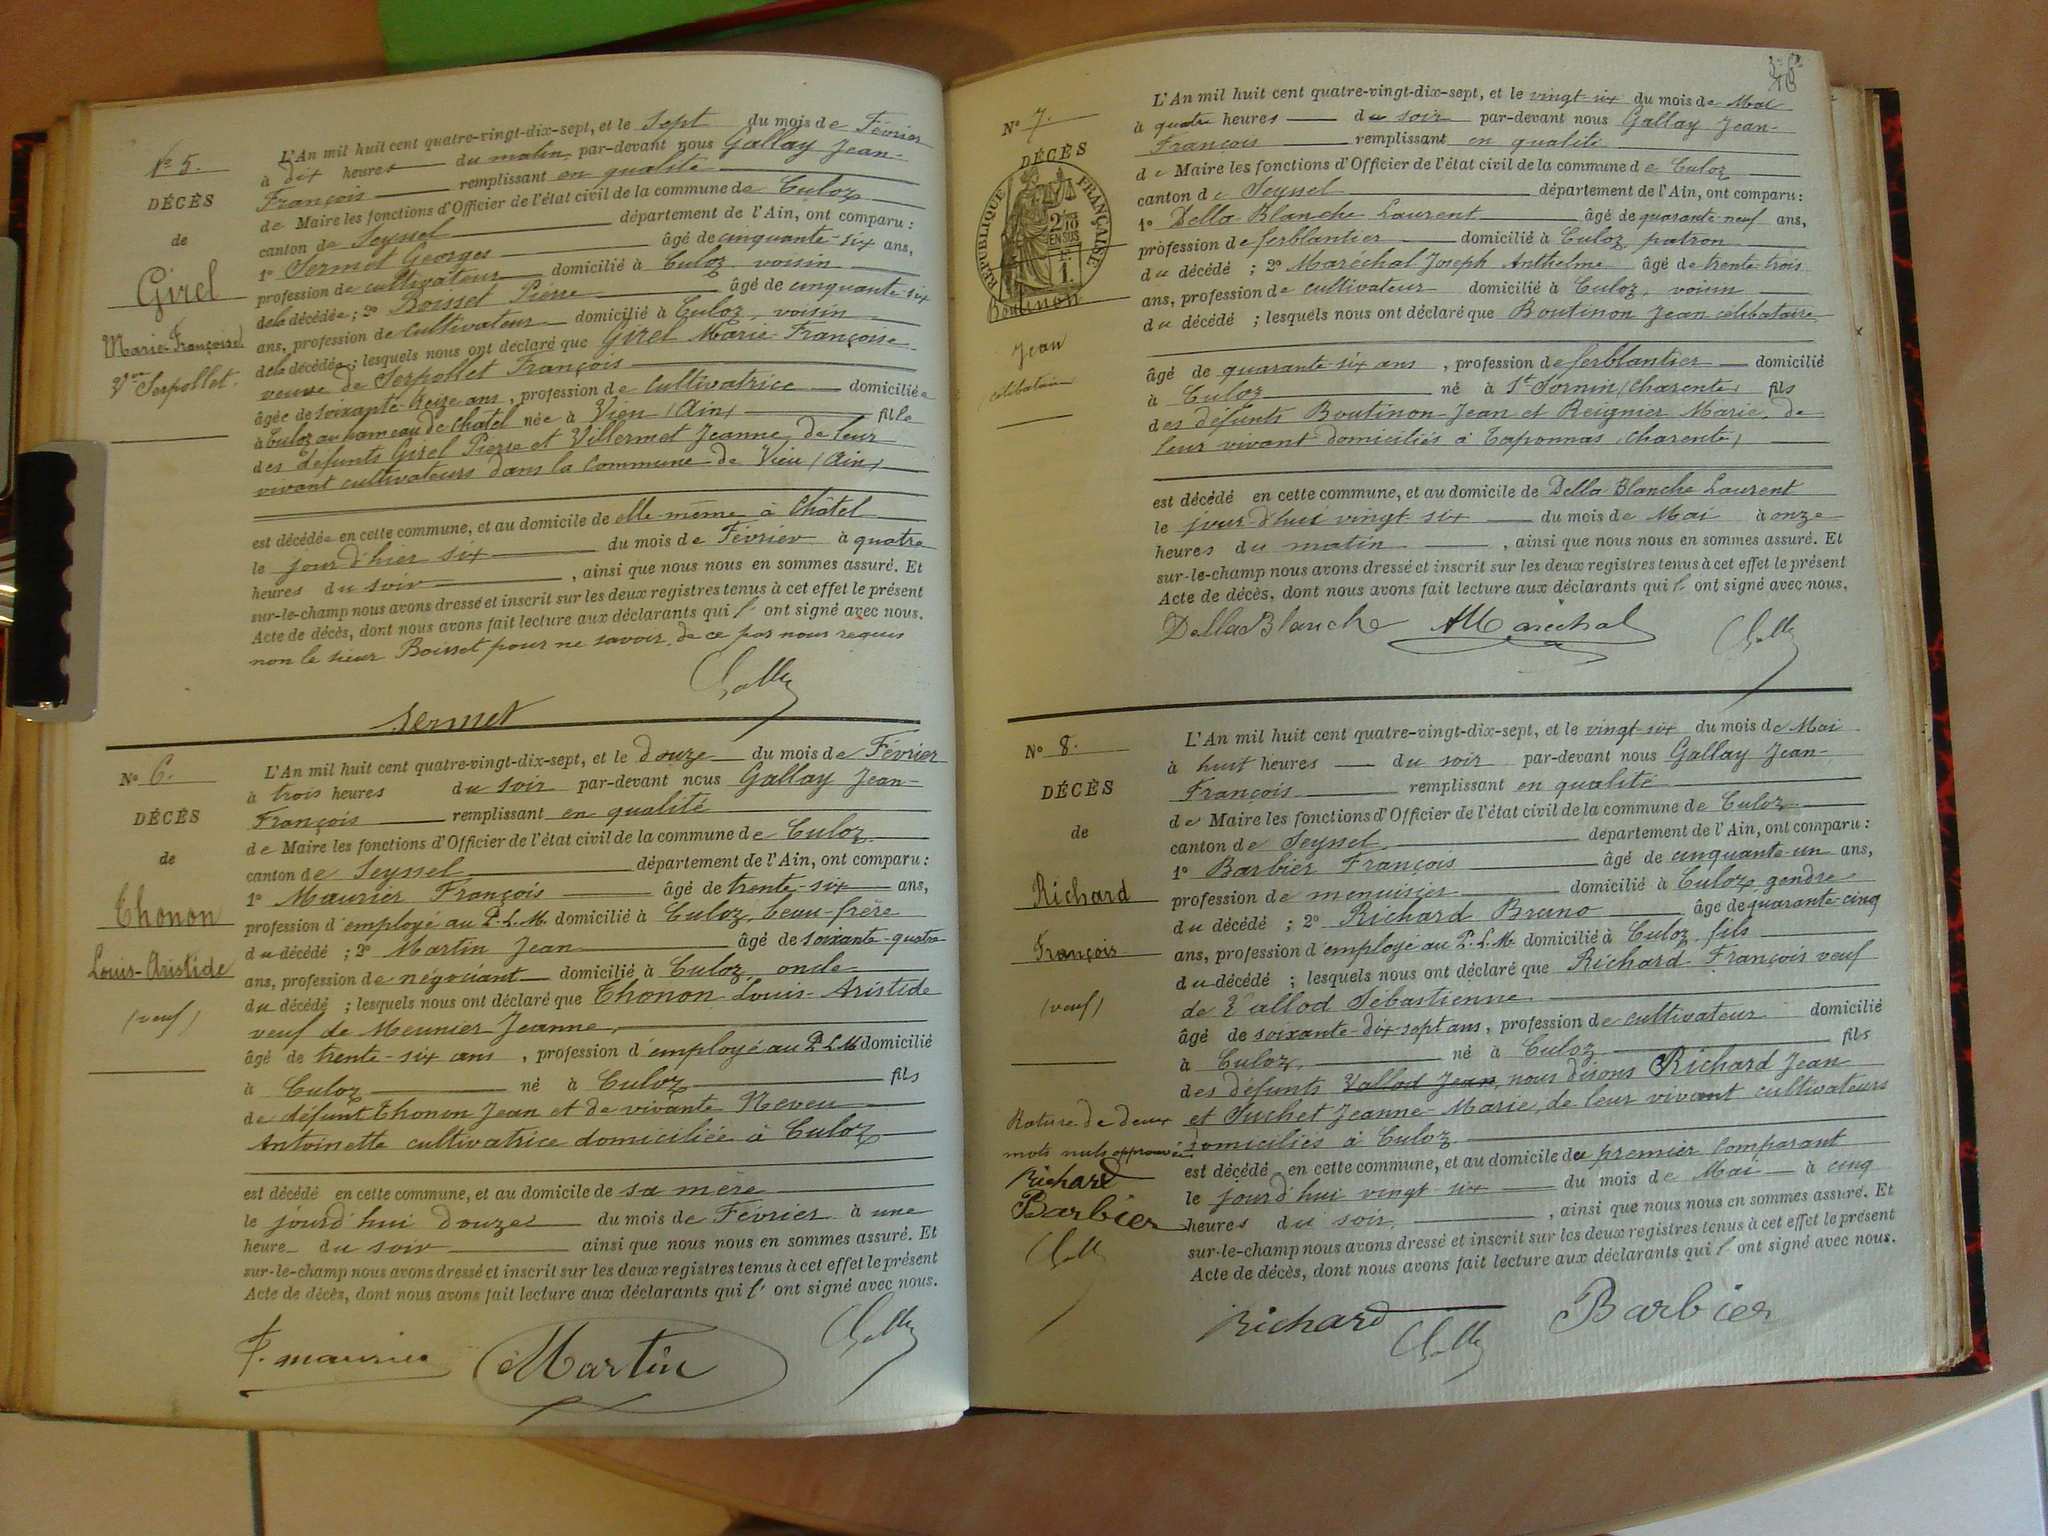 Nº 5.
DÉCÈS
de
Girel
Marie-Françoise
Vve Serpollet.
L'An mil huit cent quatre-vingt-dix-sept, et le Sept du mois de Février
à dix heures du matin, par-devant nous Gallay Jean-
François remplissant en qualité
de Maire les fonctions d'Officier de l'état civil de la commune de Culoz
canton de Seyssel département de l'Ain, ont comparu :
1º Sermet Georges âgé de cinquante-six ans,
profession de cultivateur domicilié à Culoz voisin
de la décédée ; 2º Boisset Pierre âgé de cinquante six
ans, profession de cultivateur domicilié à Culoz, voisin
de la décédée ; lesquels nous ont déclaré que Girel Marie-Françoise
veuve de Serpollet François
âgée de soixante-treize ans, profession de cultivatrice domiciliée
à Culoz au hameau de Châtel née à Vieu (Ain) fille
des défunts Girel Pierre et Villermet Jeanne, de leur
vivant cultivateurs dans la commune de Vieu (Ain)
est décédée en cette commune, et au domicile de elle-même à Châtel
le jour d'hier six du mois de Février à quatre
heures du soir, ainsi que nous nous en sommes assuré. Et
sur-le-champ nous avons dressé et inscrit sur les deux registres tenus à cet effet le présent
Acte de décès, dont nous avons fait lecture aux déclarants qui l' ont signé avec nous.
non le sieur Boisset pour ne savoir, de ce par nous requis
Sermet
Nº 6.
DÉCÈS
de
Thonon
Louis-Aristide
(veuf)
L'An mil huit cent quatre-vingt-dix-sept, et le douze du mois de Février
à trois heures du soir par-devant nous Gallay Jean-
François remplissant en qualité
de Maire les fonctions d'Officier de l'état civil de la commune de Culoz
canton de Seyssel département de l'Ain, ont comparu :
1º Maurier François âgé de trente-six ans,
profession d'employé au P.L.M. domicilié à Culoz, beau-frère
du décédé ; 2º Martin Jean âgé de soixante-quatre
ans, profession de négociant domicilié à Culoz, oncle
du décédé ; lesquels nous ont déclaré que Thonon Louis-Aristide
veuf de Meunier Jeanne,
âgé de trente-six ans, profession d'employé au P.L.M. domicilié
à Culoz né à Culoz fils
de défunt Thonon Jean et de vivante Neveu
Antoinette cultivatrice domiciliée à Culoz
est décédé en cette commune, et au domicile de sa mère
le jourd'hui douze du mois de Février à une
heure du soir ainsi que nous nous en sommes assuré. Et
sur-le-champ nous avons dressé et inscrit sur les deux registres tenus à cet effet le présent
Acte de décès, dont nous avons fait lecture aux déclarants qui l' ont signé avec nous.
F. Maurier Martin
Nº 7.
DÉCÈS
RÉPUBLIQUE FRANÇAISE
2/10
EN SUS
Boutinon
Jean
célibataire
L'An mil huit cent quatre-vingt-dix-sept, et le vingt-six du mois de Mai
à quatre heures du soir par-devant nous Gallay Jean-
François remplissant en qualité
de Maire les fonctions d'Officier de l'état civil de la commune de Culoz
canton de Seyssel département de l'Ain, ont comparu :
1º Della-Blanche Laurent âgé de quarante-neuf ans,
profession de ferblantier domicilié à Culoz, patron
du décédé ; 2º Maréchal Joseph Anthelme âgé de trente-trois
ans, profession de cultivateur domicilié à Culoz, voisin
du décédé ; lesquels nous ont déclaré que Boutinon Jean célibataire
âgé de quarante-six ans, profession de ferblantier domicilié
à Culoz né à St Sornin (Charente) fils
des défunts Boutinon Jean et Reignier Marie, de
leur vivant domiciliés à Taponnas (Charente)
est décédé en cette commune, et au domicile de Della Blanche Laurent
le jour d'hui vingt-six du mois de Mai à onze
heures du matin, ainsi que nous nous en sommes assuré. Et
sur-le-champ nous avons dressé et inscrit sur les deux registres tenus à cet effet le présent
Acte de décès, dont nous avons fait lecture aux déclarants qui l' ont signé avec nous.
DellaBlanche AMaréchal
Nº 8.
DÉCÈS
de
Richard
François
(veuf)
L'An mil huit cent quatre-vingt-dix-sept, et le vingt-six du mois de Mai
à huit heures du soir par-devant nous Gallay Jean-
François remplissant en qualité
de Maire les fonctions d'Officier de l'état civil de la commune de Culoz
canton de Seyssel département de l'Ain, ont comparu :
1º Barbier François âgé de cinquante-un ans,
profession de menuisier domicilié à Culoz, gendre
du décédé ; 2º Richard Bruno âgé de quarante-cinq
ans, profession d'employé au P.L.M. domicilié à Culoz, fils
du décédé ; lesquels nous ont déclaré que Richard François veuf
de Vallod Sébastienne
âgé de soixante-dix-sept ans, profession de cultivateur domicilié
à Culoz, né à Culoz fils
des défunts Vallod Jean, nous disons Richard Jean
et Suchet Jeanne-Marie, de leur vivant cultivateurs
domiciliés à Culoz
est décédé en cette commune, et au domicile du premier comparant
le jourd'hui vingt-six du mois de Mai à cinq
heures du soir, ainsi que nous nous en sommes assuré. Et
sur-le-champ nous avons dressé et inscrit sur les deux registres tenus à cet effet le présent
Acte de décès, dont nous avons fait lecture aux déclarants qui l' ont signé avec nous.
Rature de deux
mots nuls approuvée
Richard
Barbier
Richard Barbier